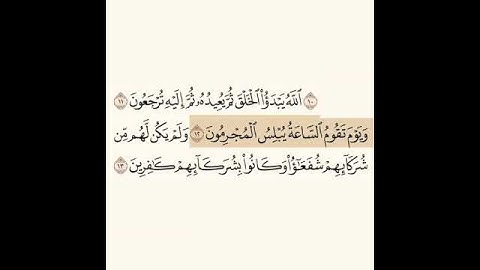 ١٠ ٱللَّهُ يَبْدَؤُا۟ ٱلْخَلْقَ ثُمَّ يُعِيدُهُۥ ثُمَّ إِلَيْهِ تُرْجَعُونَ ١١
وَيَوْمَ تَقُومُ ٱلسَّاعَةُ يُبْلِسُ ٱلْمُجْرِمُونَ ١٢ وَلَمْ يَكُن لَّهُم مِّن
شُرَكَآئِهِمْ شُفَعَٰٓؤُا۟ وَكَانُوا۟ بِشُرَكَآئِهِمْ كَٰفِرِينَ ١٣